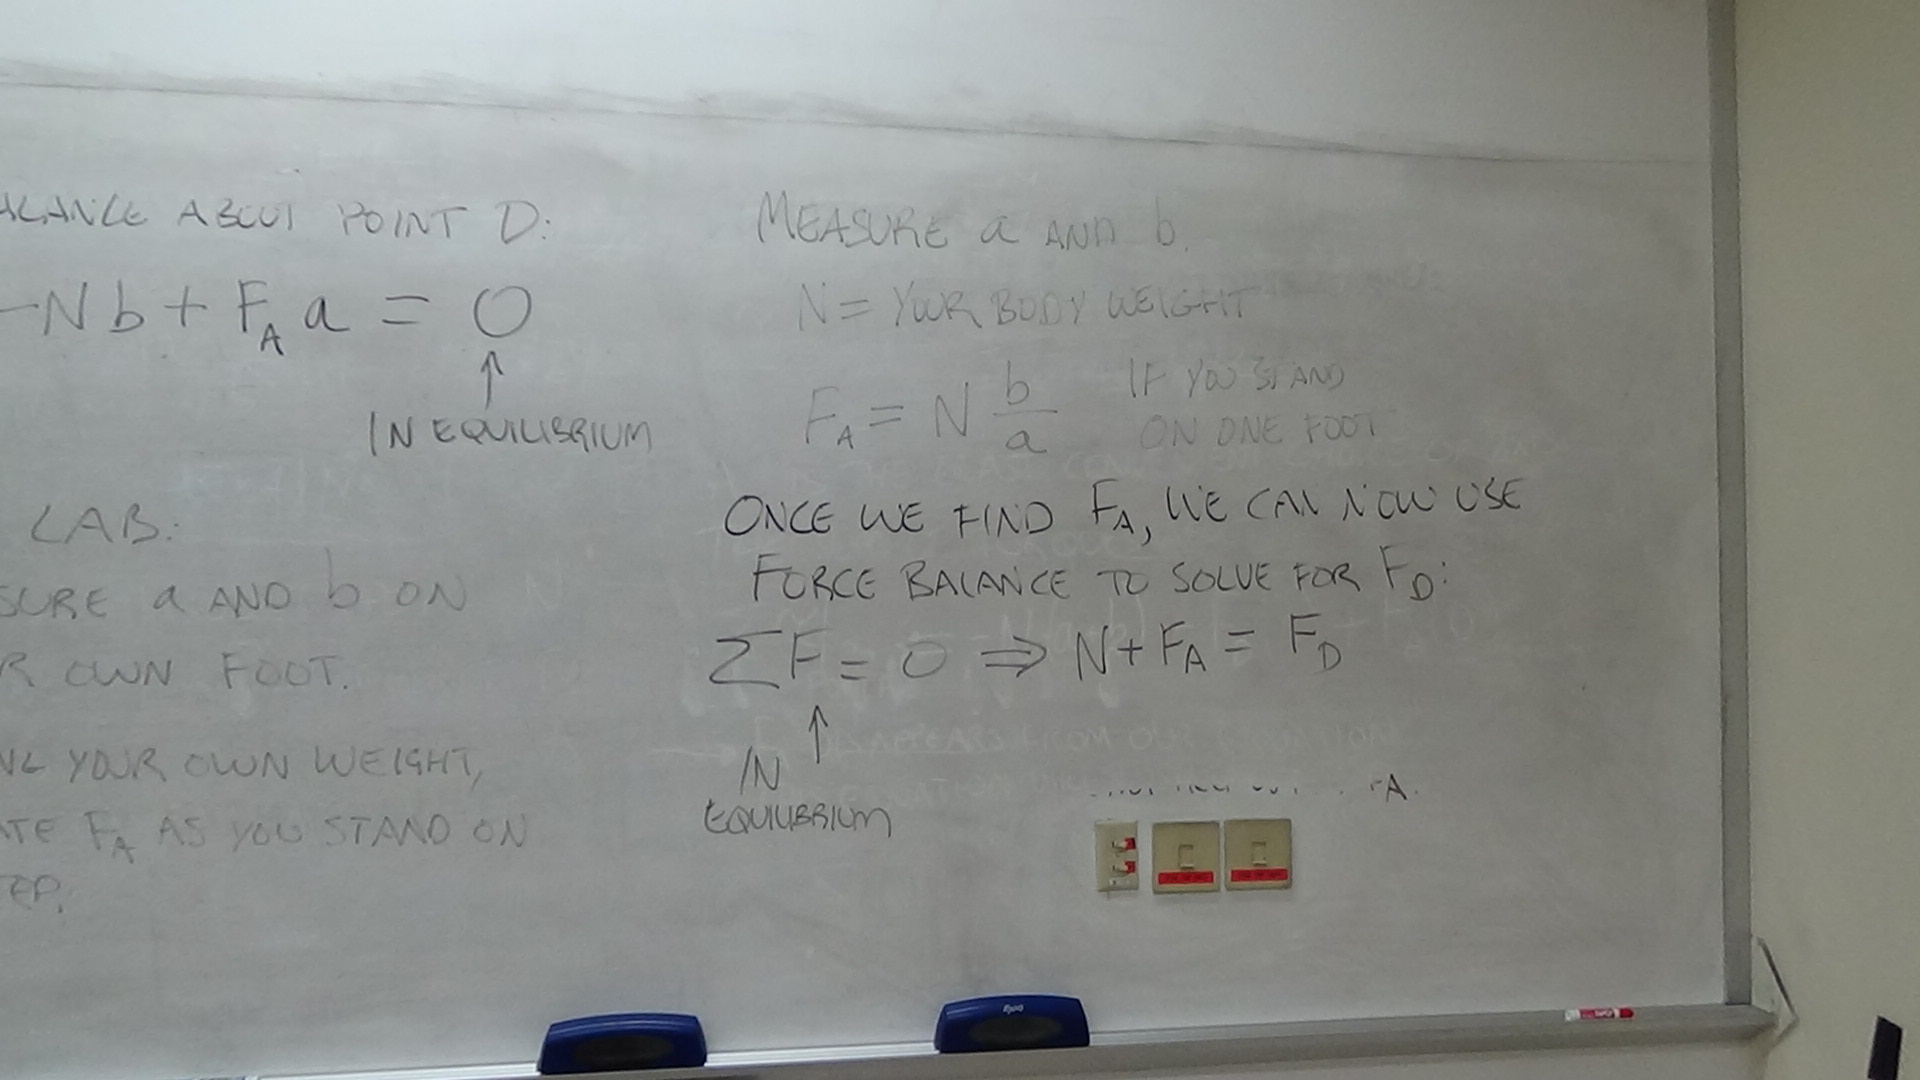 ALANCE ABOUT POINT D:
-Nb + F_A a = 0
↑
IN EQUILIBRIUM
LAB:
SURE a AND b ON
R OWN FOOT.
YOUR OWN WEIGHT,
ATE F_A AS YOU STAND ON
TEP.
MEASURE a AND b.
N = YOUR BODY WEIGHT
F_A = N b/a IF YOU STAND
ON ONE FOOT
ONCE WE FIND F_A, WE CAN NOW USE
FORCE BALANCE TO SOLVE FOR F_D:
ΣF = 0 ⇒ N + F_A = F_D
↑
IN
EQUILIBRIUM
A.